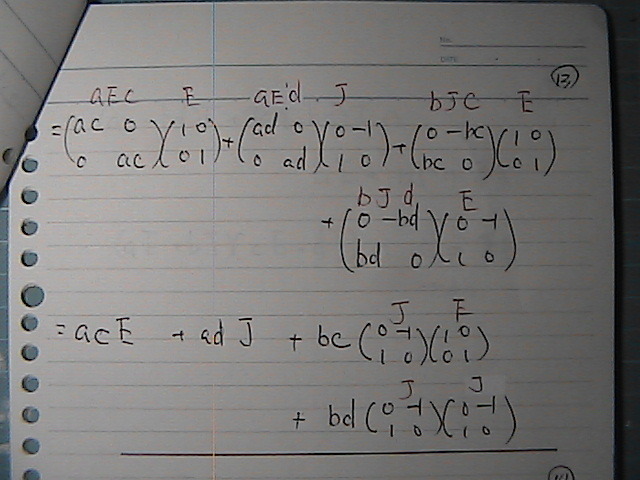 No.
DATE
13
aEc E aEd J bJC E
=(ac 0 0 ac)(1 0 0 1)+(ad 0 0 ad)(0 -1 1 0)+(0 -bc bc 0)(1 0 0 1)
bJd E
+(0 -bd bd 0)(0 -1 1 0)
J E
=acE + adJ + bc(0 -1 1 0)(1 0 0 1)
J J
+ bd(0 -1 1 0)(0 -1 1 0)